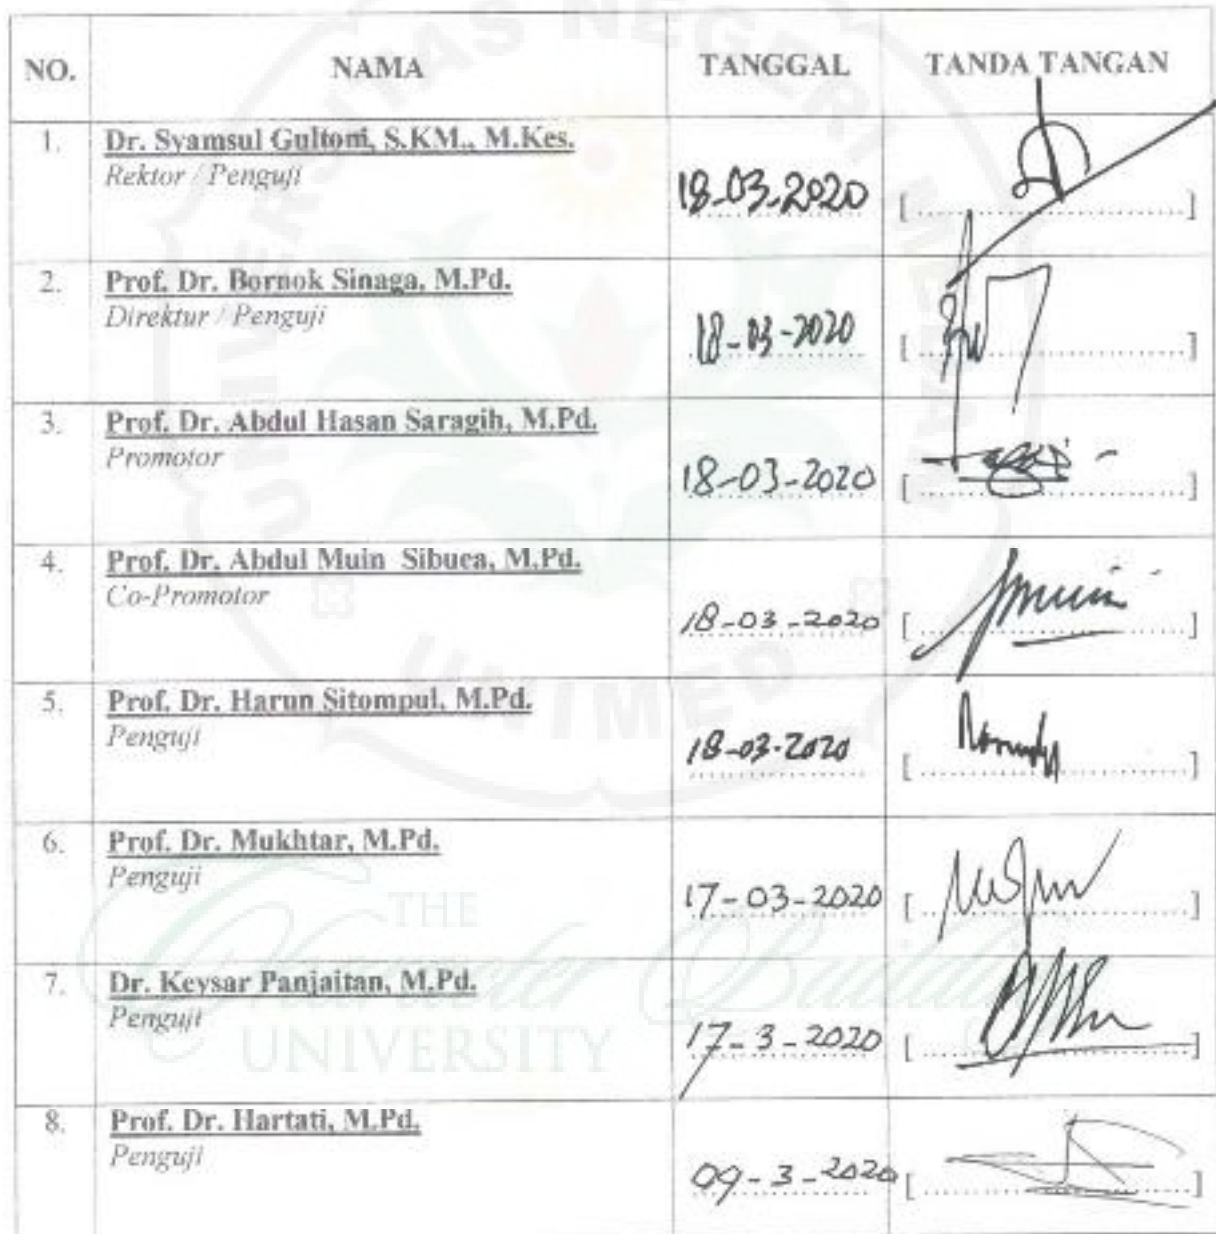 NO. NAMA TANGGAL TANDA TANGAN
1. Dr. Syamsul Gultom, S.KM., M.Kes.
Rektor / Penguji
18-03-2020 [ ........ ]
2. Prof. Dr. Bornok Sinaga, M.Pd.
Direktur / Penguji
18-03-2020 [ ........ ]
3. Prof. Dr. Abdul Hasan Saragih, M.Pd.
Promotor
18-03-2020 [ ........ ]
4. Prof. Dr. Abdul Muin Sibuea, M.Pd.
Co-Promotor
18-03-2020 [ ........ ]
5. Prof. Dr. Harun Sitompul, M.Pd.
Penguji
18-03-2020 [ ........ ]
6. Prof. Dr. Mukhtar, M.Pd.
Penguji
17-03-2020 [ ........ ]
7. Dr. Keysar Panjaitan, M.Pd.
Penguji
17-3-2020 [ ........ ]
8. Prof. Dr. Hartati, M.Pd.
Penguji
09-3-2020 [ ........ ]
UNIVERSITAS NEGERI MEDAN
UNIMED
THE
Character Building
UNIVERSITY